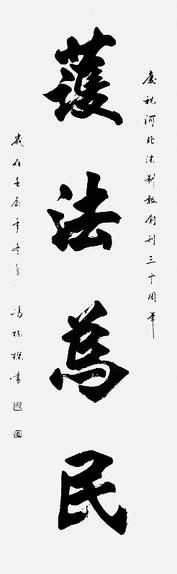 慶祝河北法制報創刊三十周年
護法為民
歲在壬辰年冬月 馮 書